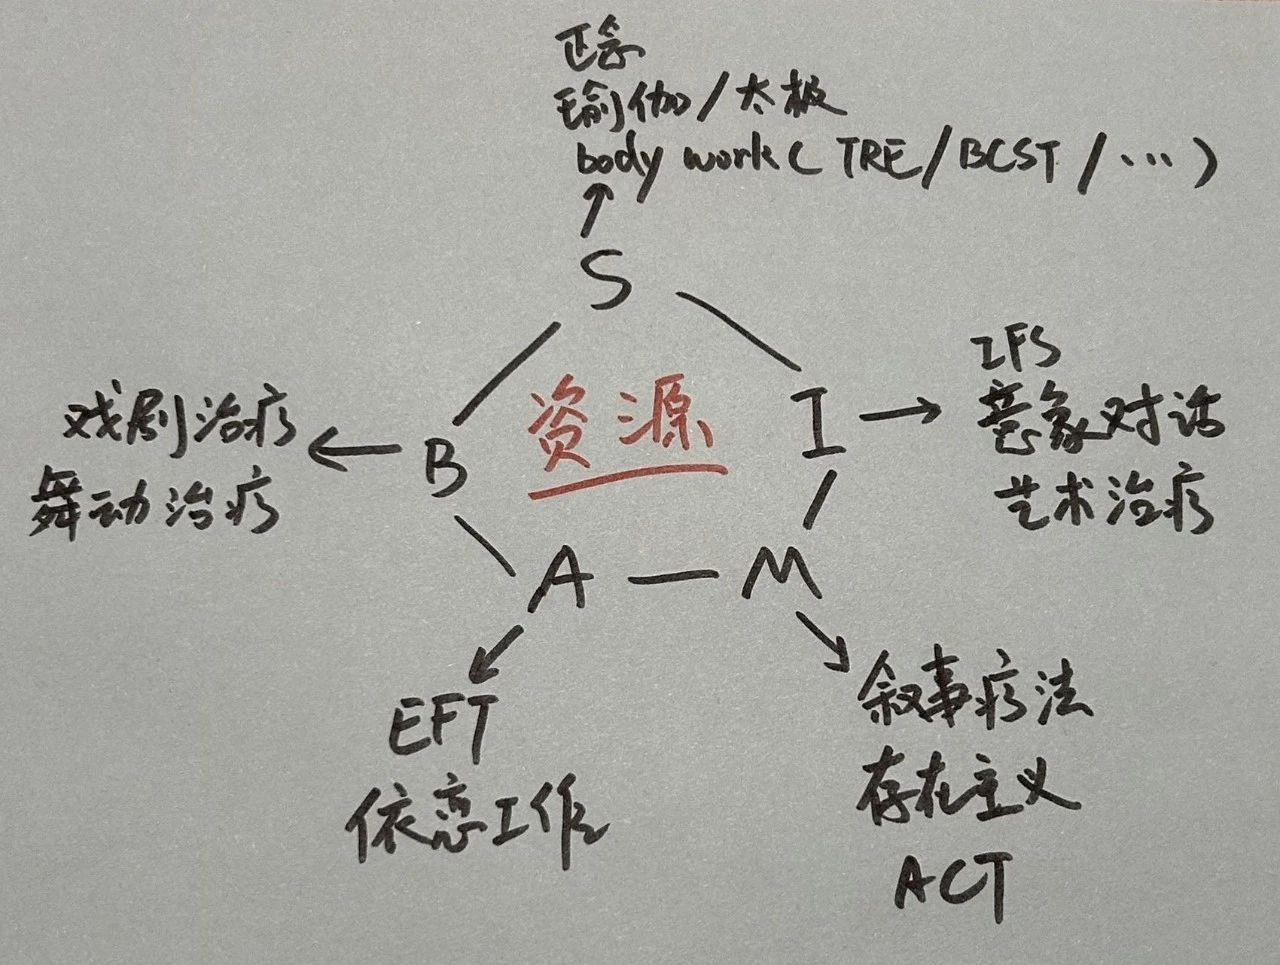 正念
瑜伽/太极
body work（TRE/BCST/…）
S
资源
I
IFS
意象对话
艺术治疗
B
戏剧治疗
舞动治疗
A
M
EFT
依恋工作
叙事疗法
存在主义
ACT